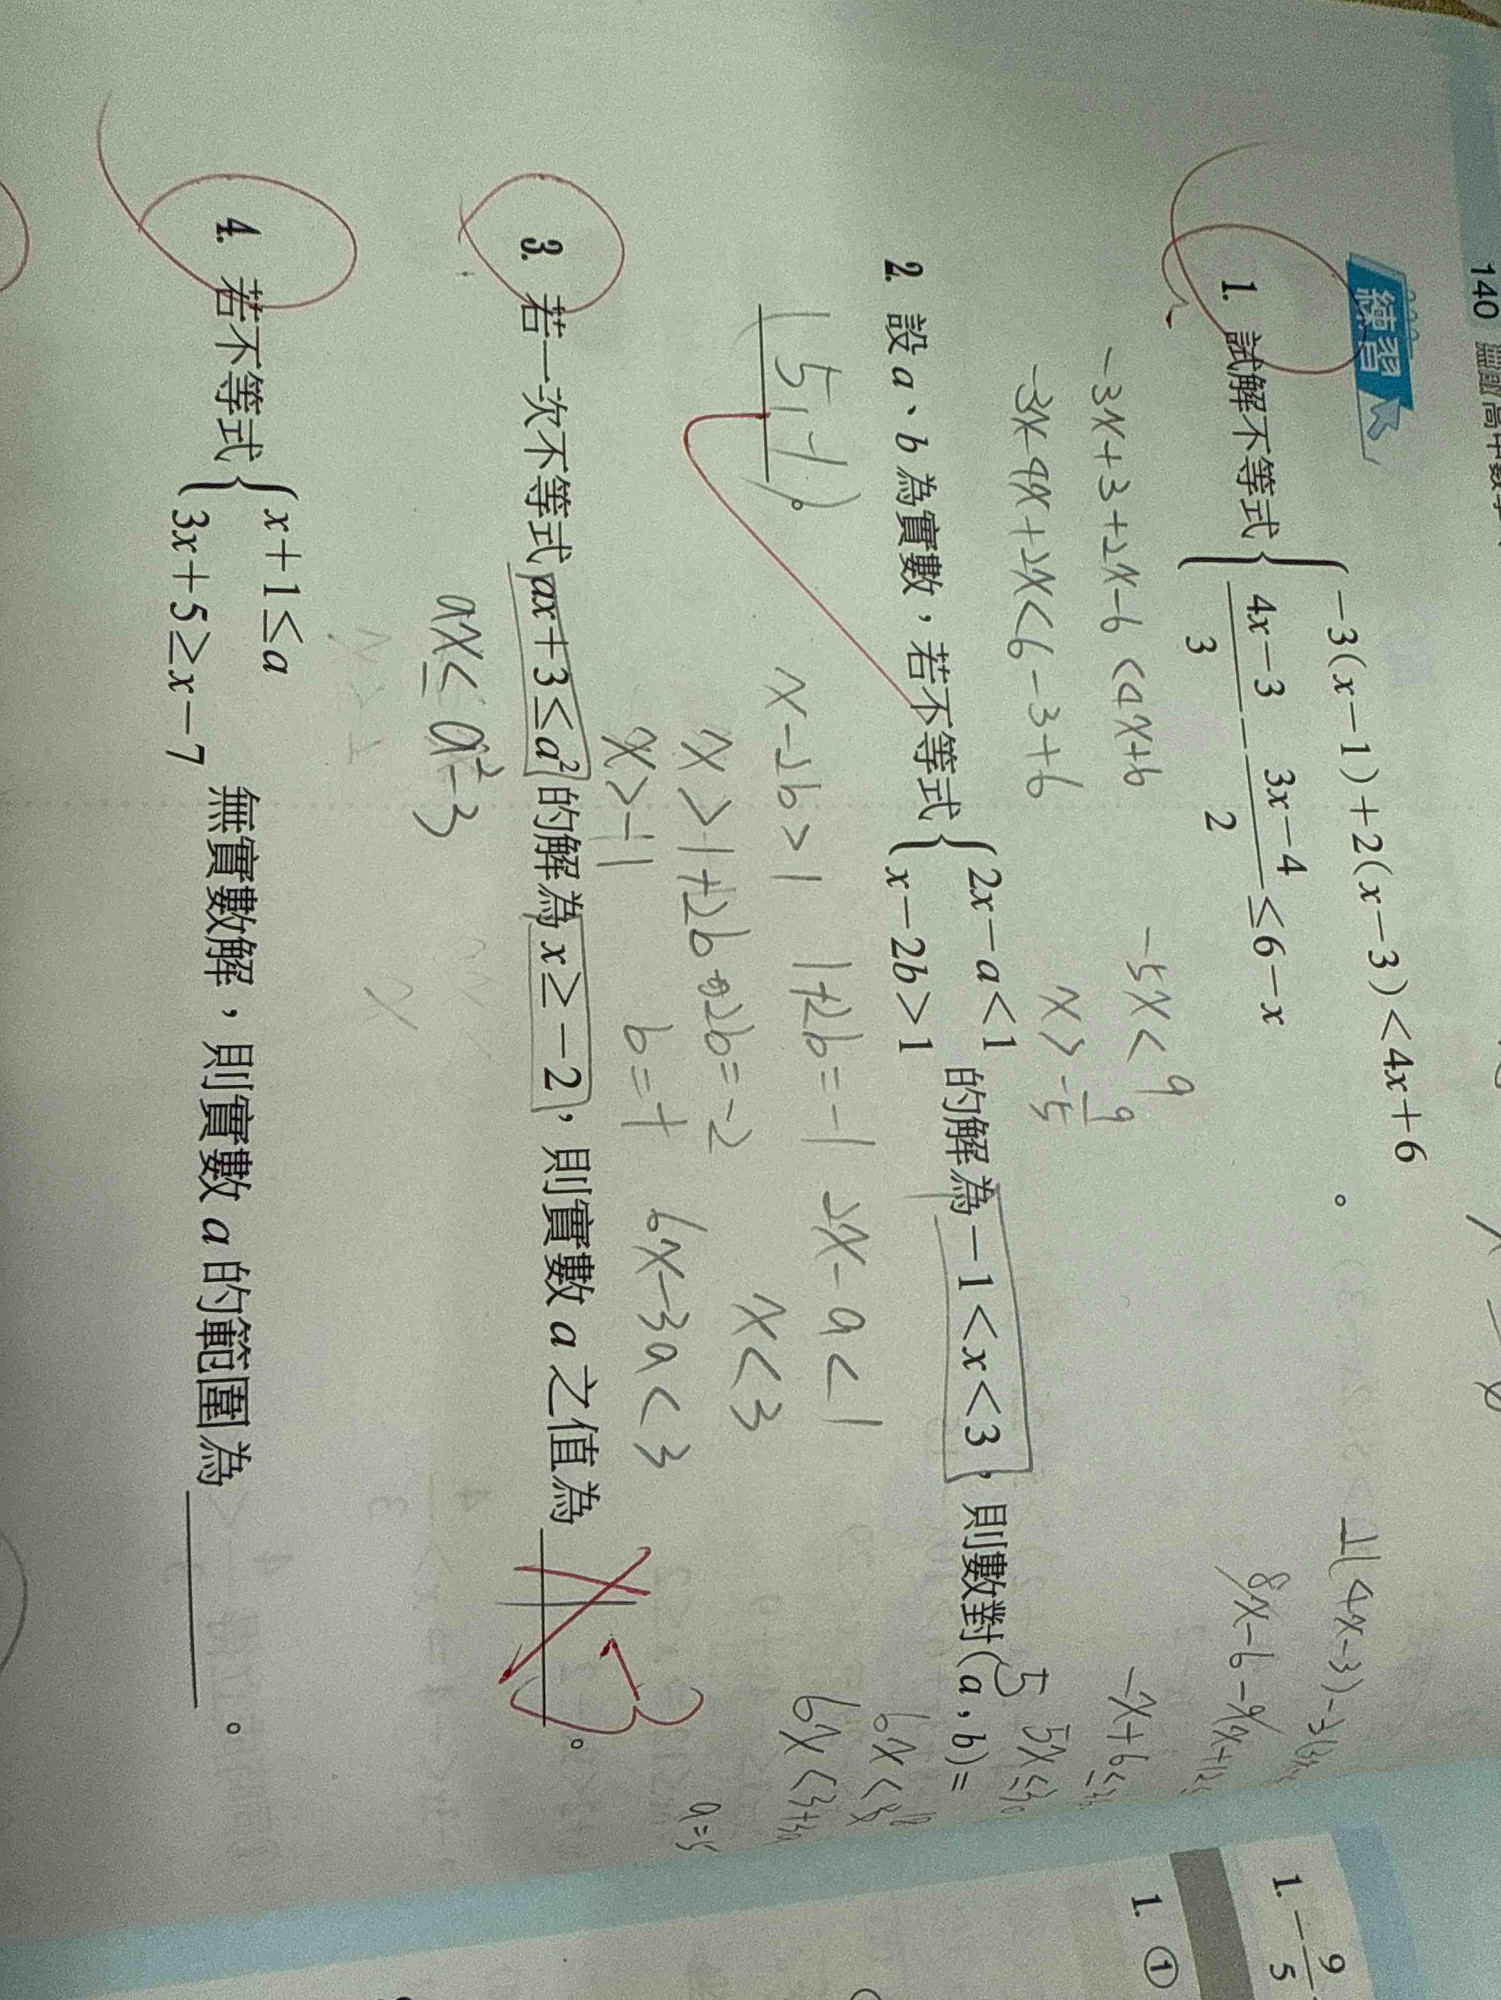 140
練習
1. 試解不等式{ -3(x-1)+2(x-3)<4x+6
(4x-3)/3 - (3x-4)/2 ≤6-x 。
-3x+3+2x-6<4x+6
-3x-4x+2x<6-3+6
-5x<9
x>-9/5
8x-6-9x+12
-x+6≤
5x≤30
2. 設 a、b 為實數,若不等式{ 2x-a<1
x-2b>1 的解為 -1<x<3,則數對(a,b)=
(5,-1)。
x-2b>1
x>1+2b
x>-1
1+2b=-1
2b=-2
b=-1
2x-a<1
x<3
6x-3a<3
6x<3+3a
a=5
3. 若一次不等式 ax+3≤a² 的解為 x≥-2,則實數 a 之值為 。
ax≤a²-3
-3
4. 若不等式{ x+1≤a
3x+5≥x-7 無實數解,則實數 a 的範圍為 。
1. -9/5
1. ①